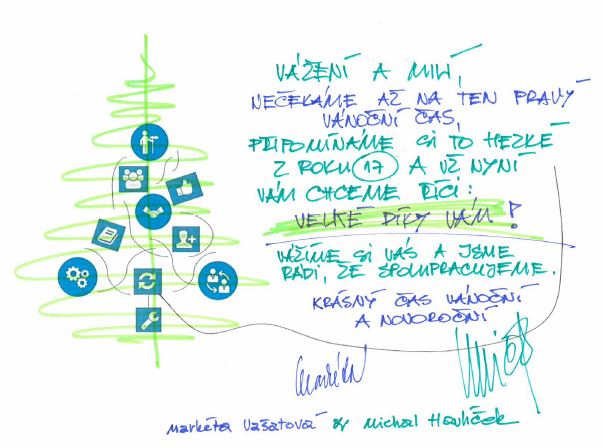 VÁŽENÍ A MILÍ,
NEČEKÁME AŽ NA TEN PRAVÝ
VÁNOČNÍ ČAS,
PŘIPOMÍNÁME SI TO HEZKÉ
Z ROKU 17 A UŽ NYNÍ
VÁM CHCEME ŘÍCI:
VELKÉ DÍKY VÁM!
VÁŽÍME SI VÁS A JSME
RÁDI, ŽE SPOLUPRACUJEME.
KRÁSNÝ ČAS VÁNOČNÍ
A NOVOROČNÍ
Markéta Vašatová & Michal Havlíček